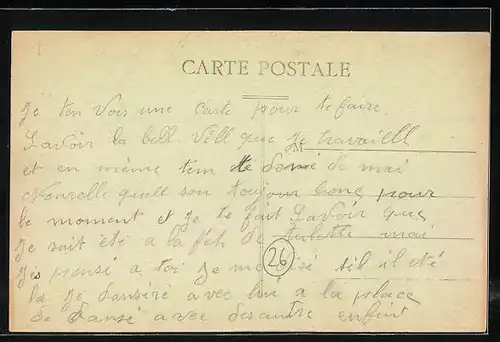 CARTE POSTALE
Je ten vois une carte pour te faire
Savoir la bell vill que Je travaill
M
et en même tem te doné de mai
Nonvelle quell son toujour bone pour
le moment et Je te fait Savoir que
Je sait été a la fêt de mai
26
Jes pensé a toi Je me disé sil il eté
la Je danséré avec lui a la place
de dansé avec des autre enfin